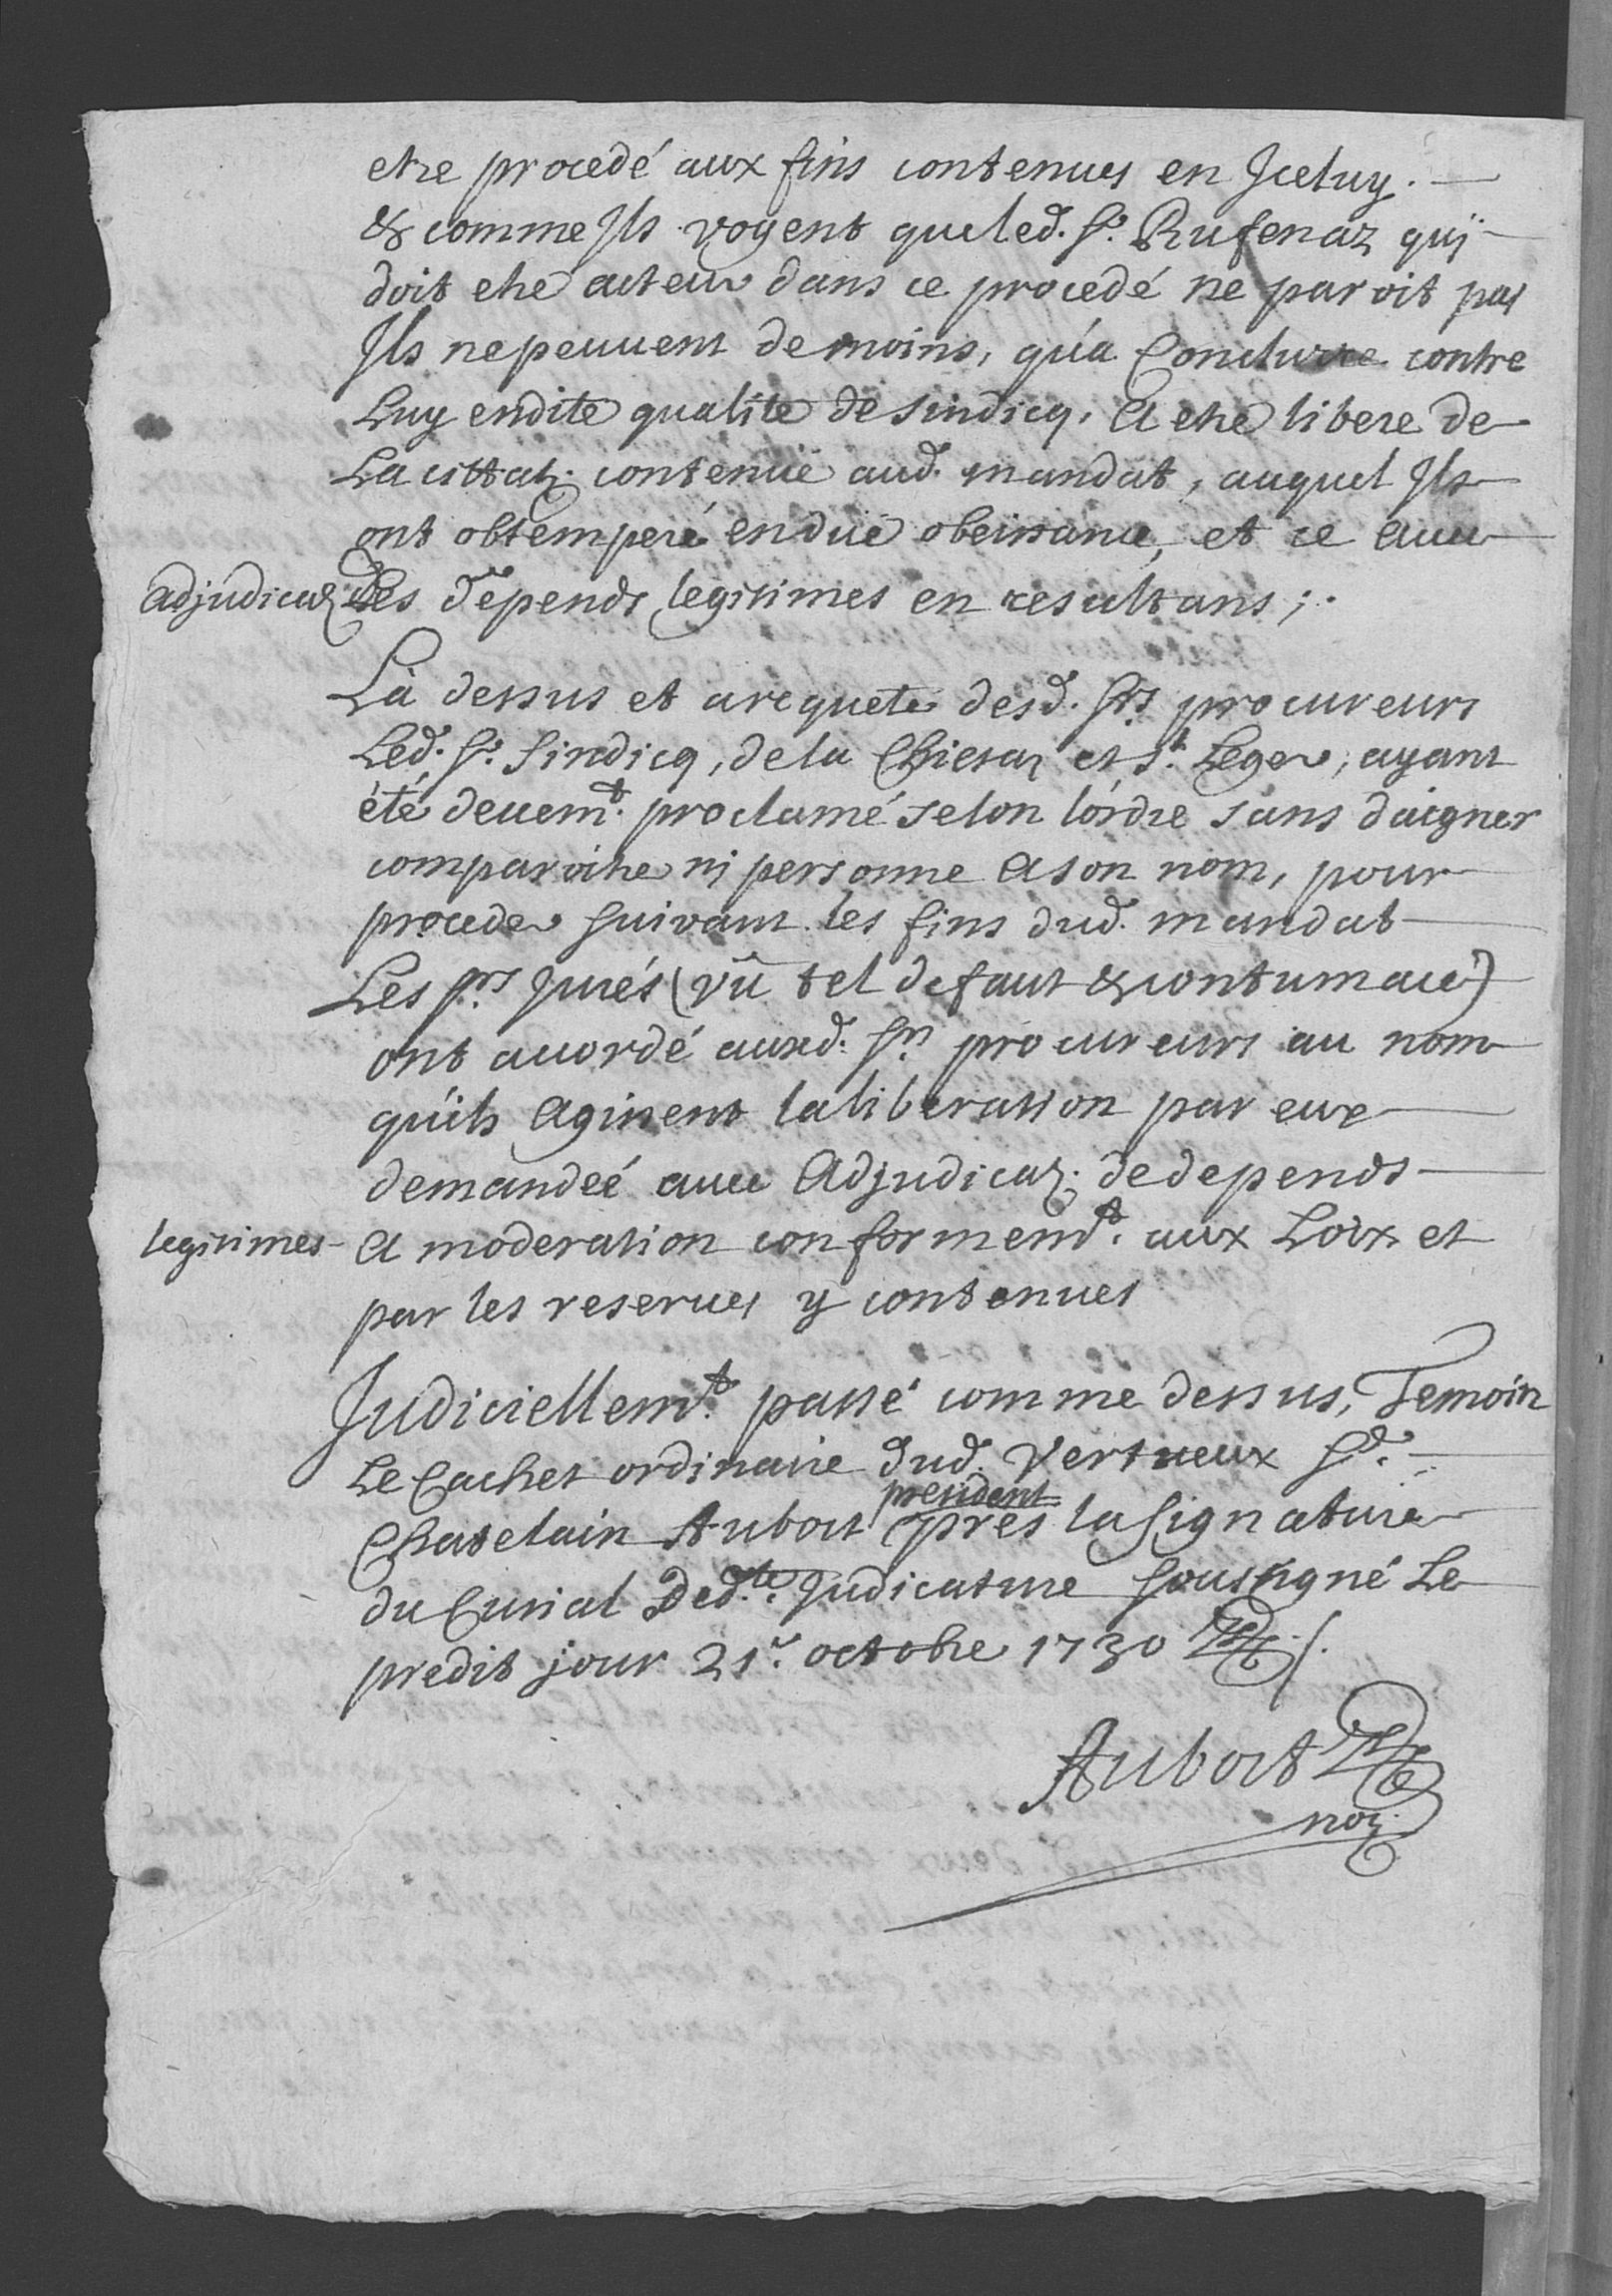 etre procedé aux fins contenues en Jceluy.
& comme Jls voyent que led. Sr. Rufenaz quj
doit etre acteur dans ce procedé ne paroit pas
Jls ne peuuent de moins, qu'a Conclurre contre
Luy endite qualite de sindicq, A etre libere de
La cittaõ. contenüe aud. mandat, auquel Jls
ont obtemperé endüe obeissance, et ce auec
adjudicaõ des depends legitimes en resultans;.
Là dessus et a requete desd. Srs. procureurs
Led. Sr. Sindicq, de la Chiesaz et St. Leger, ayant
été deuemt. proclamé selon l'ordre sans daigner
comparoitre nj personne A son nom, pour
proceder suivant les fins dud. mandat
Les prs. Jurés (vû tel defaut & contumace)
ont accordé auxd. Srs. procureurs au nom
qu'ils Agissent la liberation par eux
demandeé auec Adjudicaõ. de depends
legitimes A moderation conformemt. aux Loix et
par les reserues y contenues
Judiciellemt. passé comme dessus, Temoin
Le Cachet ordinaire dud. Vertueux Sr.
president
Chatelain Aubort pres la signature
du Curial Dedte. Judicature soussigné Le
predit jour 21e. octobre 1730
Aubort
nore.